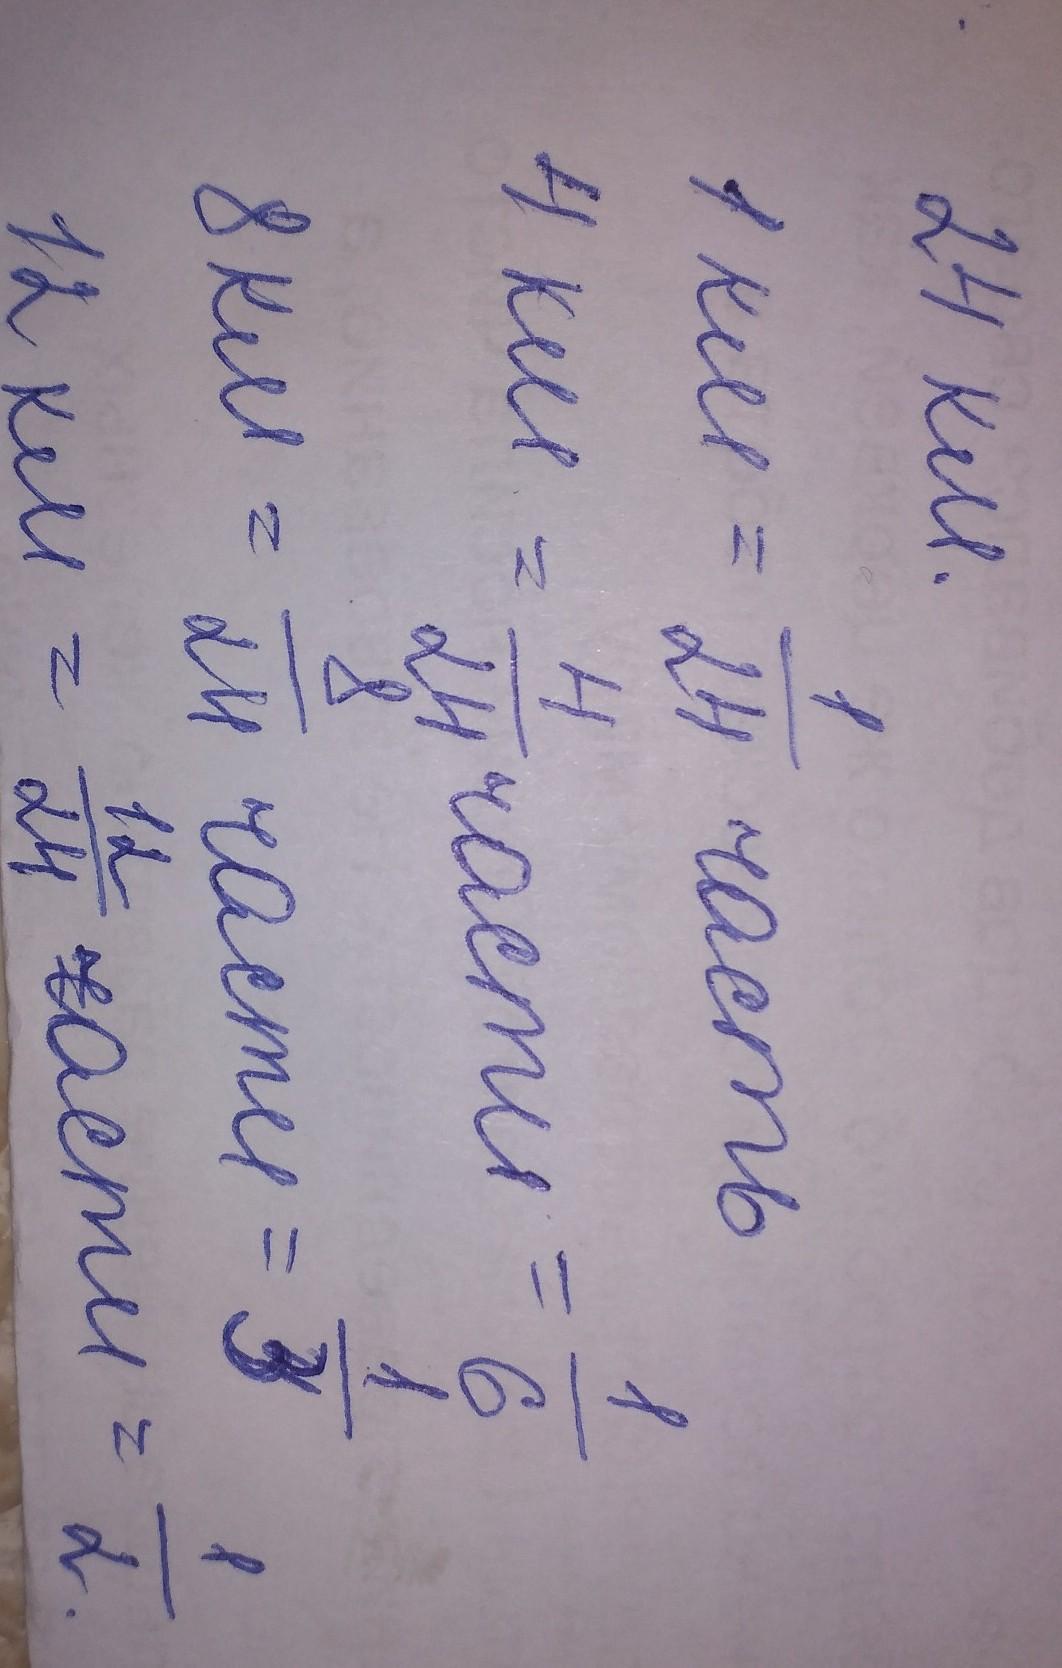 24 км.
1 км = 1/24 часть
4 км = 4/24 части = 1/6
8 км = 8/24 части = 1/3
12 км = 12/24 части = 1/2.